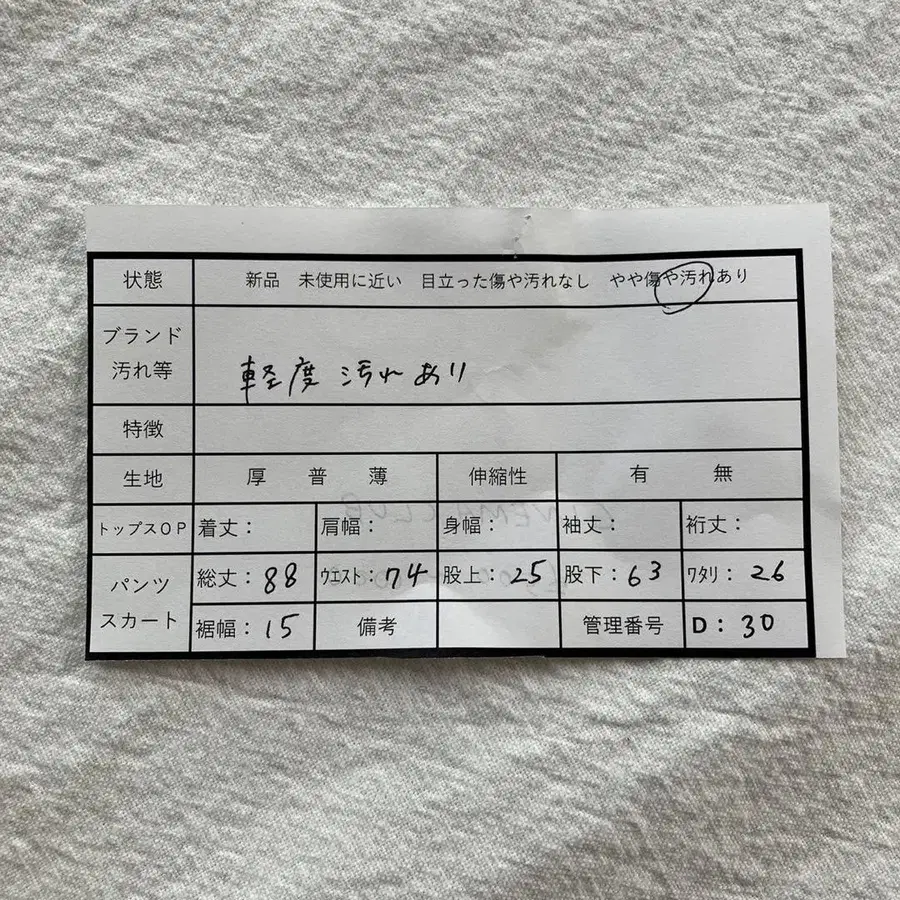 状態 新品 未使用に近い 目立った傷や汚れなし やや傷や汚れあり
ブランド
汚れ等 軽度 汚れあり
特徴
生地 厚 普 薄 伸縮性 有 無
トップスOP 着丈: 肩幅: 身幅: 袖丈: 裄丈:
パンツ
スカート 総丈: 88 ウエスト: 74 股上: 25 股下: 63 ワタリ: 26
裾幅: 15 備考 管理番号 D: 30